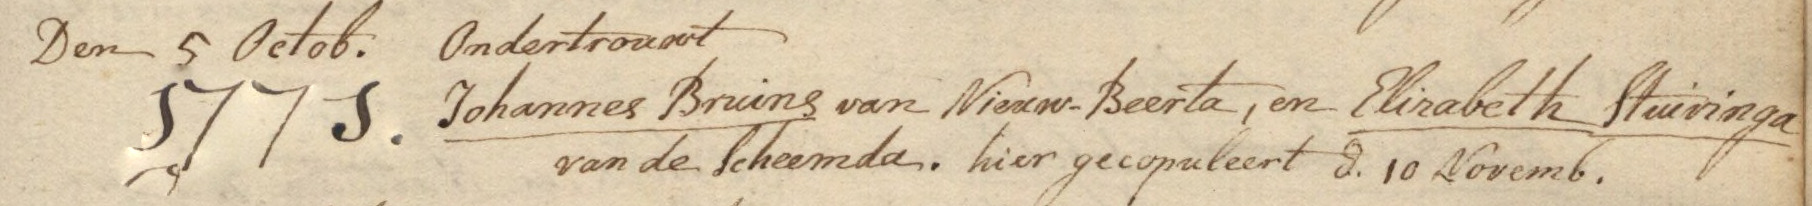 Den 5 Octob. Ondertrouwt
1771. Johannes Bruins van Nieuw-Beerta, en Elizabeth Stuivinga
van de Scheemda. hier gecopuleert d. 10 Novemb.